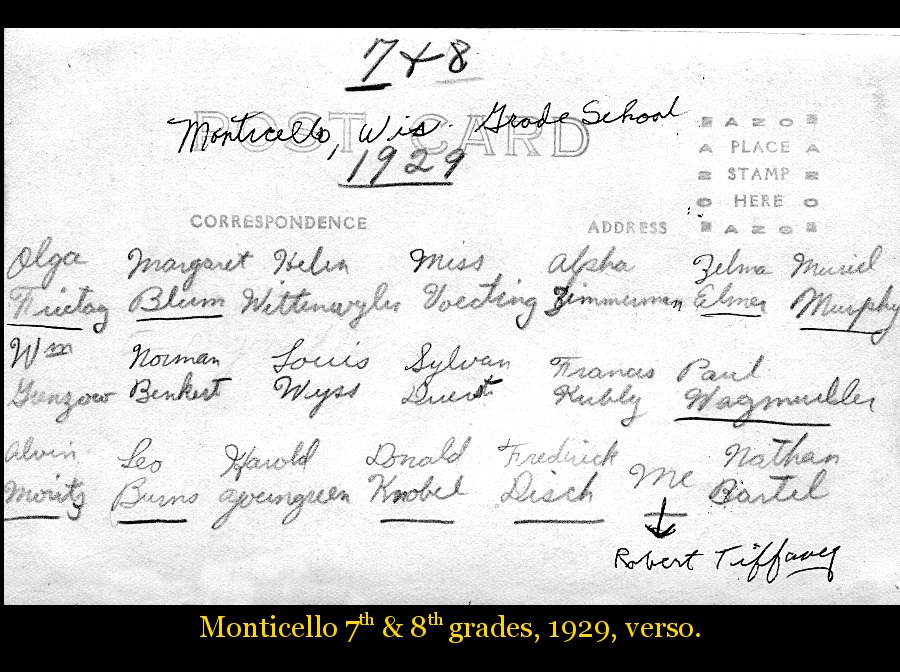 7 + 8
POST CARD
Monticello, Wis. Grade School
1929
AZO
PLACE
STAMP
HERE
AZO
CORRESPONDENCE ADDRESS
Olga Margaret Helen Miss Alpha Zelma Muriel
Frietag Blum Wittenwyler Voegting Zimmerman Elmer Murphy
Wm Norman Louis Sylvan Francis Paul
Grenzow Benkert Wyss Duerst Kubly Wagmueller
Alvin Leo Harold Donald Frederick Me Nathan
Moritz Burns Knobel Disch Bartel
Robert Tiffany
Monticello 7th & 8th grades, 1929, verso.